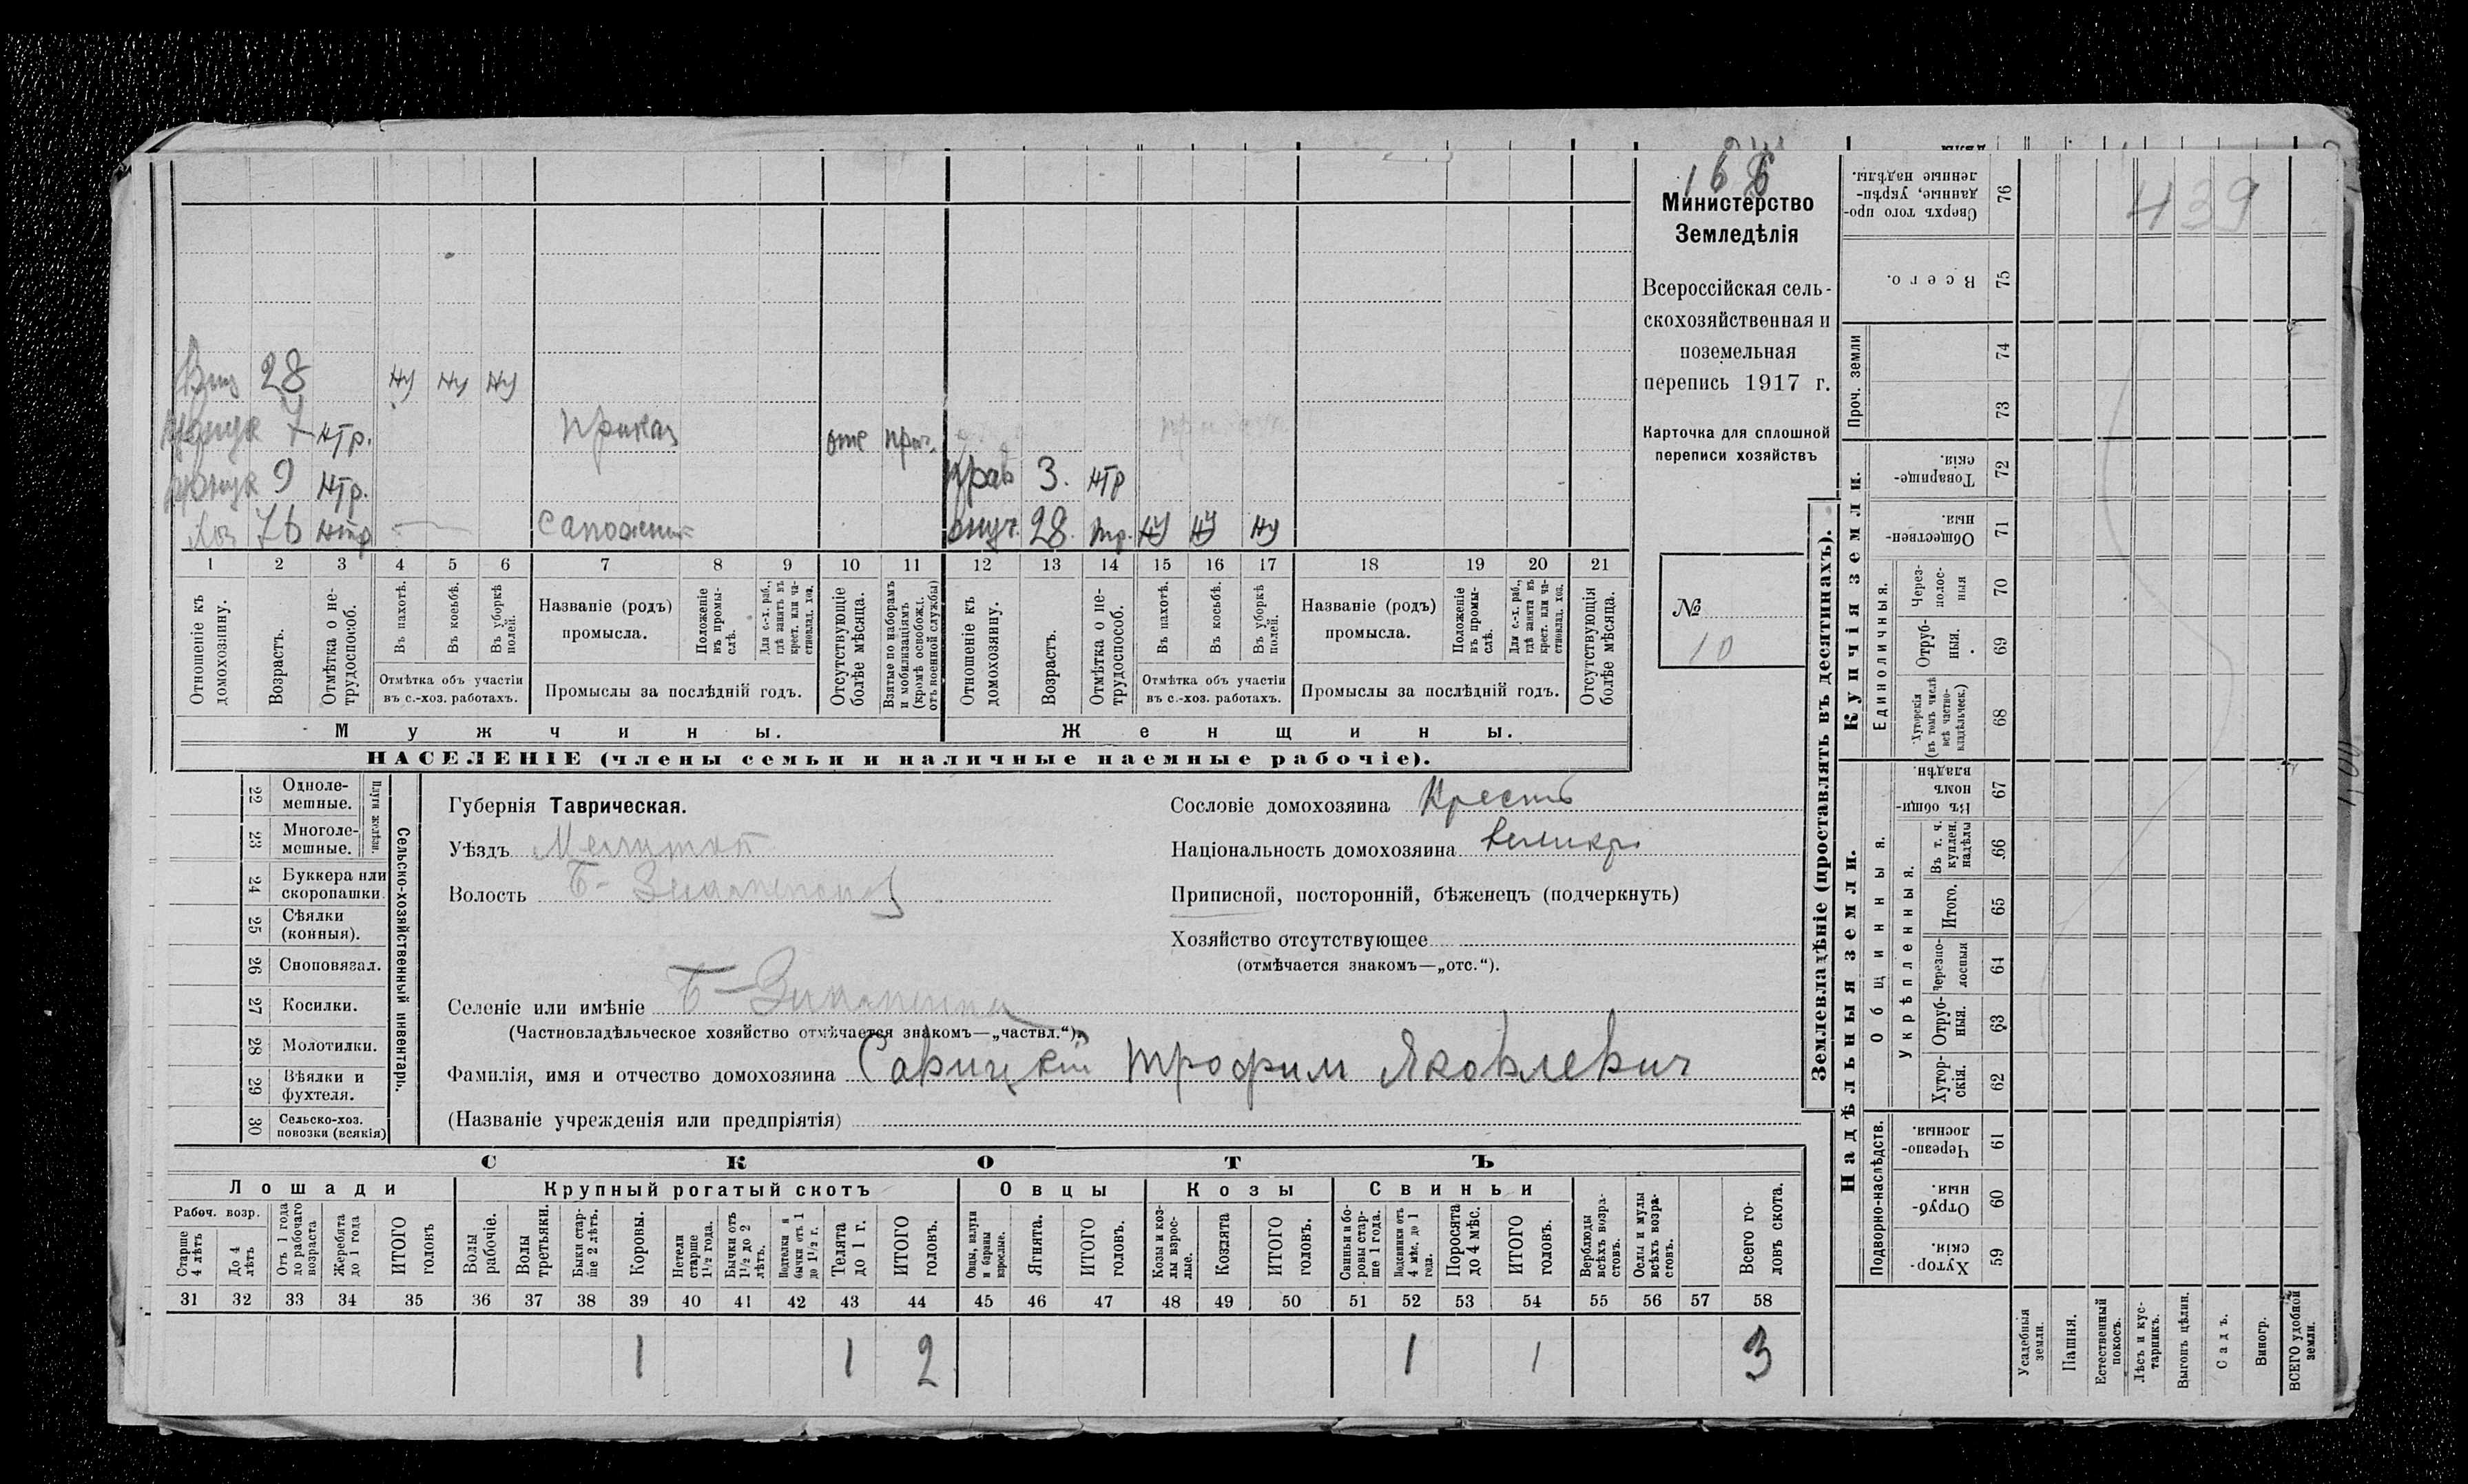 166
Министерство
Земледѣлія
Всероссійская сель-
скохозяйственная и
поземельная
перепись 1917 г.
Карточка для сплошной
переписи хозяйствъ
№
10
439
28 Ну Ну Ну
7 нтр. приказ отс
9 нтр. прав 3. нтр
Хоз 76 нтр Сапожник 28. тр. Ну Ну Ну
1 2 3 4 5 6 7 8 9 10 11 12 13 14 15 16 17 18 19 20 21
Отношеніе къ домохозяину.
Возрастъ.
Отмѣтка о не-трудоспособ.
Въ пахотѣ.
Въ косьбѣ.
Въ уборкѣ полей.
Отмѣтка объ участіи
въ с.-хоз. работахъ.
Названіе (родъ)
промысла.
Положеніе въ промы-слѣ.
Для с.-х. раб., гдѣ занятъ въ крест. или ча-стновлад. хоз.
Промыслы за послѣдній годъ.
Отсутствующіе болѣе мѣсяца.
Взятые по наборамъ и мобилизаціямъ (кромѣ освобожд. отъ военной службы)
Отношеніе къ домохозяину.
Возрастъ.
Отмѣтка о не-трудоспособ.
Въ пахотѣ.
Въ косьбѣ.
Въ уборкѣ полей.
Отмѣтка объ участіи
въ с.-хоз. работахъ.
Названіе (родъ)
промысла.
Положеніе въ промы-слѣ.
Для с.-х. раб., гдѣ занята въ крест. или ча-стновлад. хоз.
Промыслы за послѣдній годъ.
Отсутствующія болѣе мѣсяца.
Мужчины. Женщины.
НАСЕЛЕНІЕ (члены семьи и наличные наемные рабочіе).
22 Одноле-мешные.
23 Многоле-мешные.
Плуги желѣзн.
24 Буккера или скоропашки.
25 Сѣялки (конныя).
26 Сноповязал.
27 Косилки.
28 Молотилки.
29 Вѣялки и фухтеля.
30 Сельско-хоз. повозки (всякія)
Сельско-хозяйственный инвентарь.
Губернія Таврическая.
Уѣздъ Мелитоп
Волость Б-Знаменской
Селеніе или имѣніе Б-Знаменка
(Частновладѣльческое хозяйство отмѣчается знакомъ—„частвл.“).
Фамилія, имя и отчество домохозяина Савицкій Трофим Яковлевич
(Названіе учрежденія или предпріятія)
Сословіе домохозяина Крест
Національность домохозяина великр
Приписной, посторонній, бѣженецъ (подчеркнуть)
Хозяйство отсутствующее
(отмѣчается знакомъ—„отс.“).
СКОТЪ
Лошади Крупный рогатый скотъ Овцы Козы Свиньи
Рабоч. возр.
Старше 4 лѣтъ
До 4 лѣтъ
Отъ 1 года до рабочаго возраста
Жеребята до 1 года
ИТОГО головъ
Волы рабочіе.
Волы третьяки.
Быки стар-ше 2 лѣтъ.
Коровы.
Нетели старше 1½ года.
Бычки отъ 1½ до 2 лѣтъ.
Подтелки и бычки отъ 1 до 1½ г.
Телята до 1 г.
ИТОГО головъ.
Овцы, валухи и бараны взрослые.
Ягнята.
ИТОГО головъ.
Козы и коз-лы взрос-лые.
Козлята
ИТОГО головъ.
Свиньи и бо-ровы стар-ше 1 года.
Подсвинки отъ 4 мѣс. до 1 года.
Поросята до 4 мѣс.
ИТОГО головъ.
Верблюды всѣхъ возра-стовъ.
Ослы и мулы всѣхъ возра-стовъ.
Всего го-ловъ скота.
31 32 33 34 35 36 37 38 39 40 41 42 43 44 45 46 47 48 49 50 51 52 53 54 55 56 57 58
1 1 2 1 1 3
Землевладѣніе (проставлять въ десятинахъ).
Надѣльныя земли. Купчія земли.
Подворно-наслѣдств.
Общинныя.
Укрѣпленныя.
Единоличныя.
Проч. земли
76 Сверхъ того про-данные, укрѣп-ленные надѣлы.
75 Всего.
74
73
72 Товарище-скія.
71 Обществен-ныя.
70 Через-полос-ныя
69 Отруб-ныя.
68 Хуторскія (въ томъ числѣ всѣ частно-владѣльческ.)
67 Въ общи-номъ владѣн.
66 Въ т. ч. куплен. надѣлы
65 Итого.
64 Черезпо-лосныя
63 Отруб-ныя.
62 Хутор-скія.
61 Черезпо-лосныя.
60 Отруб-ныя.
59 Хутор-скія.
Усадебныя земли.
Пашня.
Естественный покосъ.
Лѣсъ и кус-тарникъ.
Выгонъ цѣлин.
Садъ.
Виногр.
ВСЕГО удобной земли.